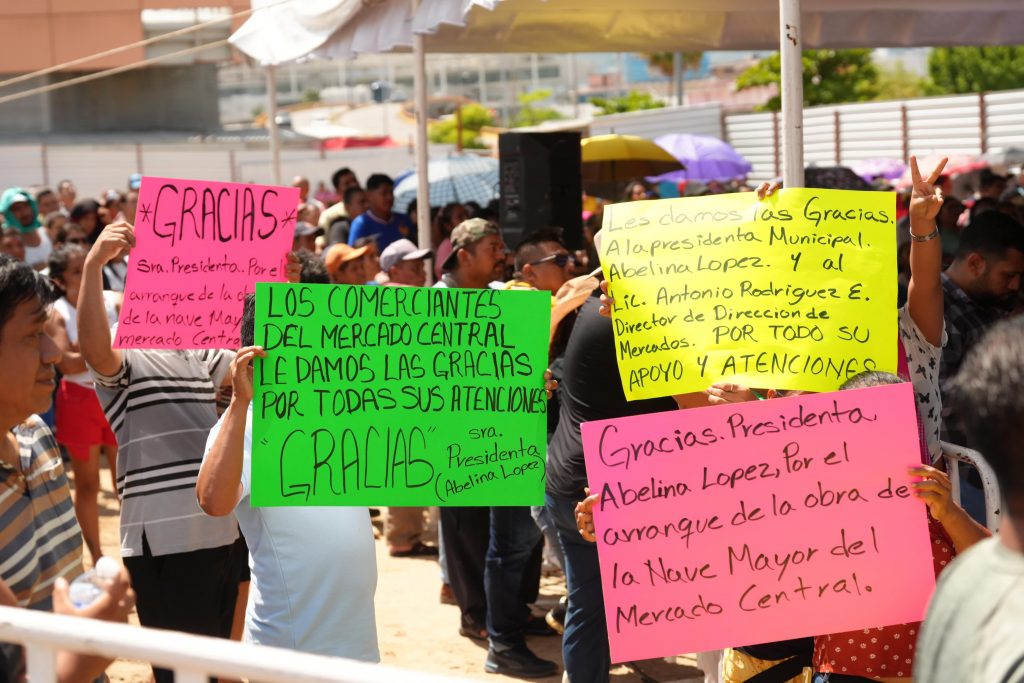 *GRACIAS*
Sra. Presidenta. Por el
arranque de la obra
de la nave Mayor
mercado Central
LOS COMERCIANTES
DEL MERCADO CENTRAL
LE DAMOS LAS GRACIAS
POR TODAS SUS ATENCIONES
"GRACIAS"
Sra.
Presidenta
(Abelina Lopez)
Les damos las Gracias.
A la presidenta Municipal.
Abelina Lopez. y al
Lic. Antonio Rodriguez E.
Director de Direccion de
Mercados. POR TODO SU
APOYO Y ATENCIONES
Gracias. Presidenta.
Abelina Lopez, Por el
arranque de la obra de
la Nave Mayor del
Mercado Central.